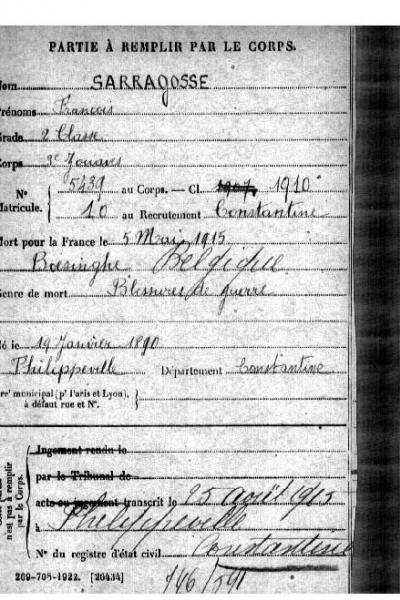 PARTIE À REMPLIR PAR LE CORPS.
Nom SARRAGOSSE
Prénoms François
Grade 2 Classe
Corps 3e Zouaves
N° Matricule. { 5439 au Corps. — Cl. 1907 1910
10 au Recrutement Constantine
Mort pour la France le 5 Mai 1915
Boesinghe Belgique
Genre de mort Blessures de guerre
Né le 19 Janvier 1890
Philippeville Département Constantine
Arr' municipal (p' Paris et Lyon),
à défaut rue et N°.
n'est pas à remplir
par le Corps.
Jugement rendu le
par le Tribunal de
acte ou jugement transcrit le 25 août 1915
à Philippeville
N° du registre d'état civil Constantine
269-708-1922. [26434]
146/591